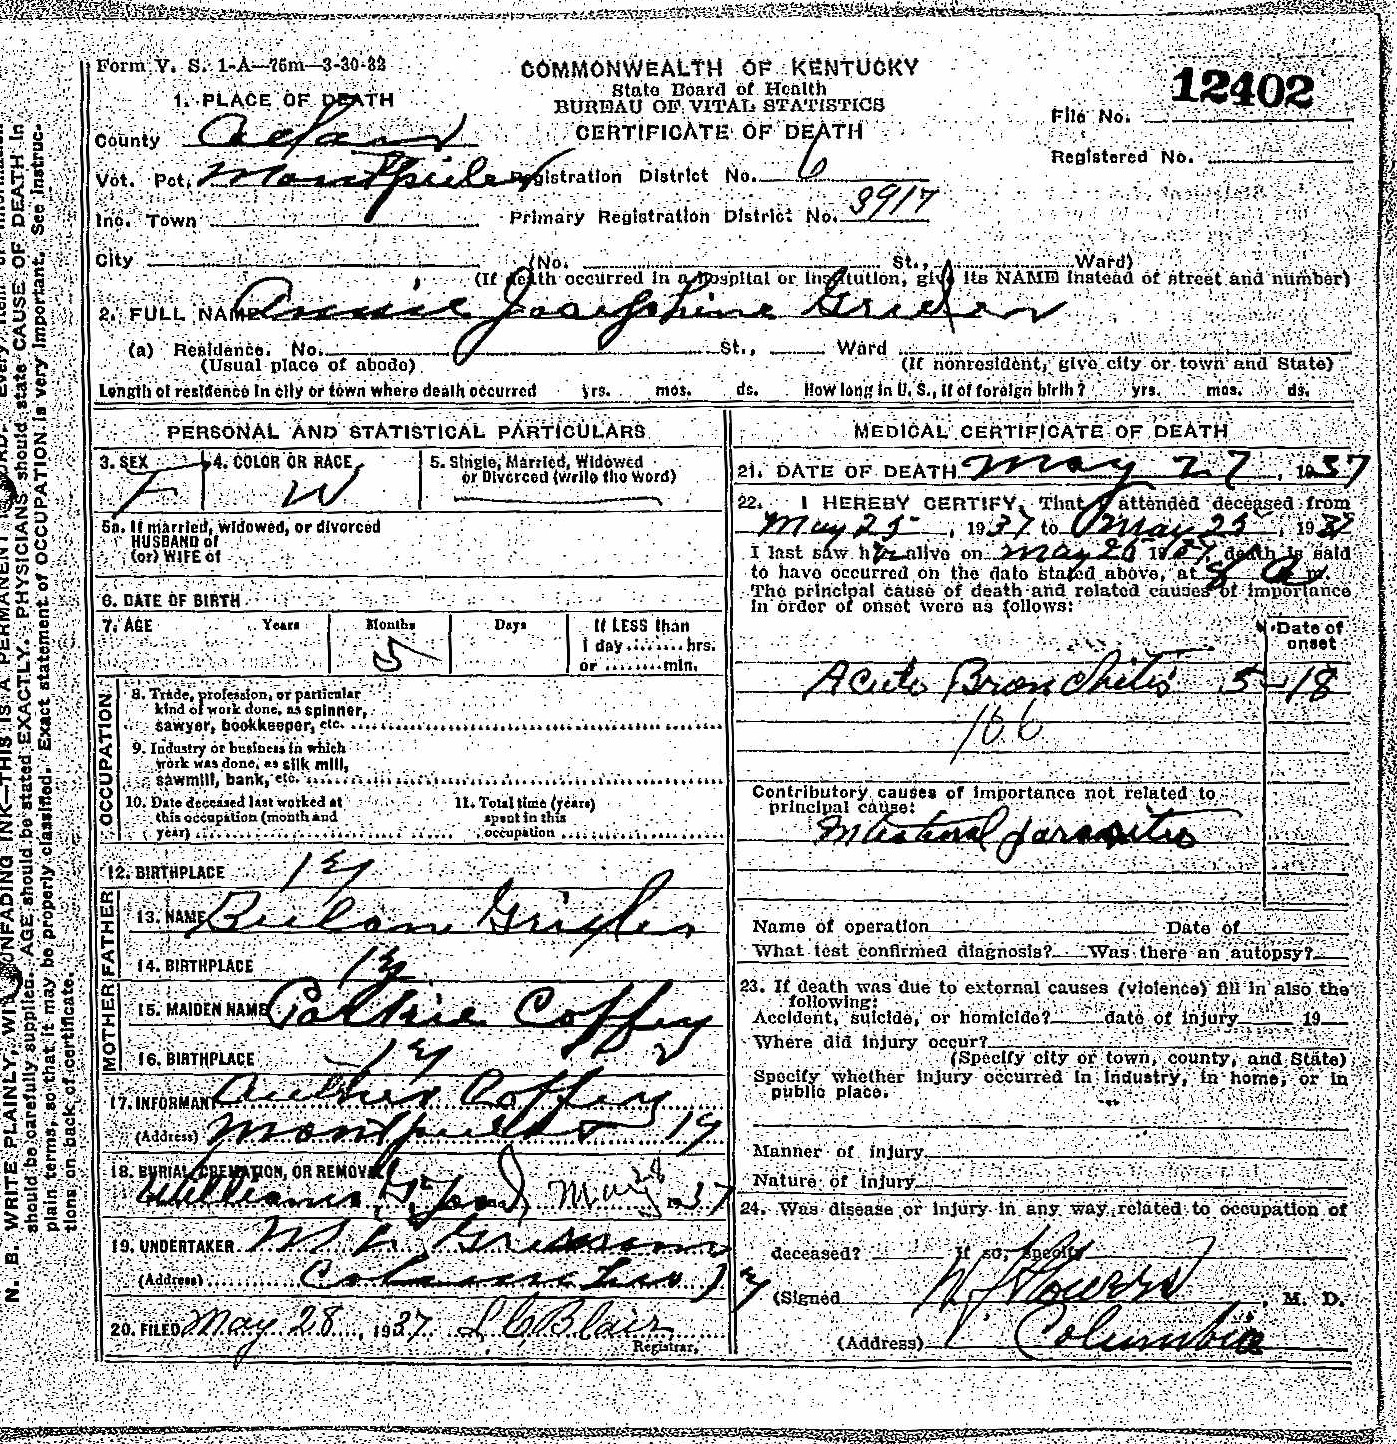 Form V. S. 1-A—75m—3-30-32
COMMONWEALTH OF KENTUCKY
State Board of Health
BUREAU OF VITAL STATISTICS
CERTIFICATE OF DEATH
12402
File No.
Registered No.
1. PLACE OF DEATH
County Adair
Vot. Pct. Montpelier Registration District No. 6
Inc. Town Primary Registration District No. 3917
City (No. St., Ward)
(If death occurred in a hospital or institution, give its NAME instead of street and number)
2. FULL NAME Annie Josephine Grider
(a) Residence. No. St., Ward
(Usual place of abode) (If nonresident, give city or town and State)
Length of residence in city or town where death occurred yrs. mos. ds. How long in U. S., if of foreign birth? yrs. mos. ds.
PERSONAL AND STATISTICAL PARTICULARS
3. SEX 4. COLOR OR RACE 5. Single, Married, Widowed
or Divorced (write the word)
F W
5a. If married, widowed, or divorced
HUSBAND of
(or) WIFE of
6. DATE OF BIRTH
7. AGE Years Months Days If LESS than
1 day ........ hrs.
or ........ min.
5
OCCUPATION
8. Trade, profession, or particular
kind of work done, as spinner,
sawyer, bookkeeper, etc.
9. Industry or business in which
work was done, as silk mill,
sawmill, bank, etc.
10. Date deceased last worked at
this occupation (month and
year)
11. Total time (years)
spent in this
occupation
12. BIRTHPLACE Ky
FATHER
13. NAME Grider
14. BIRTHPLACE Ky
MOTHER
15. MAIDEN NAME Coffey
16. BIRTHPLACE Ky
17. INFORMANT Coffey
(Address) Montpelier Ky
18. BURIAL, CREMATION, OR REMOVAL
Williams May 28 37
19. UNDERTAKER Grissom
(Address) Columbia Ky
20. FILED May 28, 1937 L C Blair
Registrar.
MEDICAL CERTIFICATE OF DEATH
21. DATE OF DEATH May 27, 1937
22. I HEREBY CERTIFY, That I attended deceased from
May 25, 1937 to May 25, 19
I last saw her alive on May 1937, death is said
to have occurred on the date stated above, at m.
The principal cause of death and related causes of importance
in order of onset were as follows:
Date of
onset
Acute Bronchitis 5-18
106
Contributory causes of importance not related to
principal cause:
Intestinal parasites
Name of operation Date of
What test confirmed diagnosis? Was there an autopsy?
23. If death was due to external causes (violence) fill in also the
following:
Accident, suicide, or homicide? date of injury 19
Where did injury occur?
(Specify city or town, county, and State)
Specify whether injury occurred in industry, in home, or in
public place.
Manner of injury
Nature of injury
24. Was disease or injury in any way related to occupation of
deceased? If so, specify
(Signed Flowers, M. D.
(Address) Columbia
N. B. WRITE PLAINLY, WITH UNFADING INK—THIS IS A PERMANENT RECORD. Every item of information
should be carefully supplied. AGE should be stated EXACTLY. PHYSICIANS should state CAUSE OF DEATH in
plain terms, so that it may be properly classified. Exact statement of OCCUPATION is very important. See instruc-
tions on back of certificate.